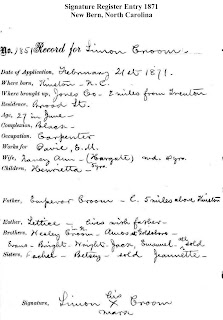 Signature Register Entry 1871
New Bern, North Carolina
No. 1851 Record for Simon Croom
Date of Application, February 21st 1871.
Where born, Kinston - N.C.
Where brought up, Jones Co - 8 miles from Trenton
Residence, Broad St.
Age, 27 in June -
Complexion, Black
Occupation, Carpenter
Works for
Wife, Nancy Ann - (Hargett) md. 9 yrs.
Children, Henrietta -
Father, Emperor Croom - 6 miles above Kinston
Mother, Lettice - lives with father -
Brothers, Wesley Croom - Amos Goldsboro -
Evans - Bright, Wright, Jack, Emanuel, all sold
Sisters, Rachel - Betsey - sold Jeannette -
his
Signature, Simon X Croom
mark